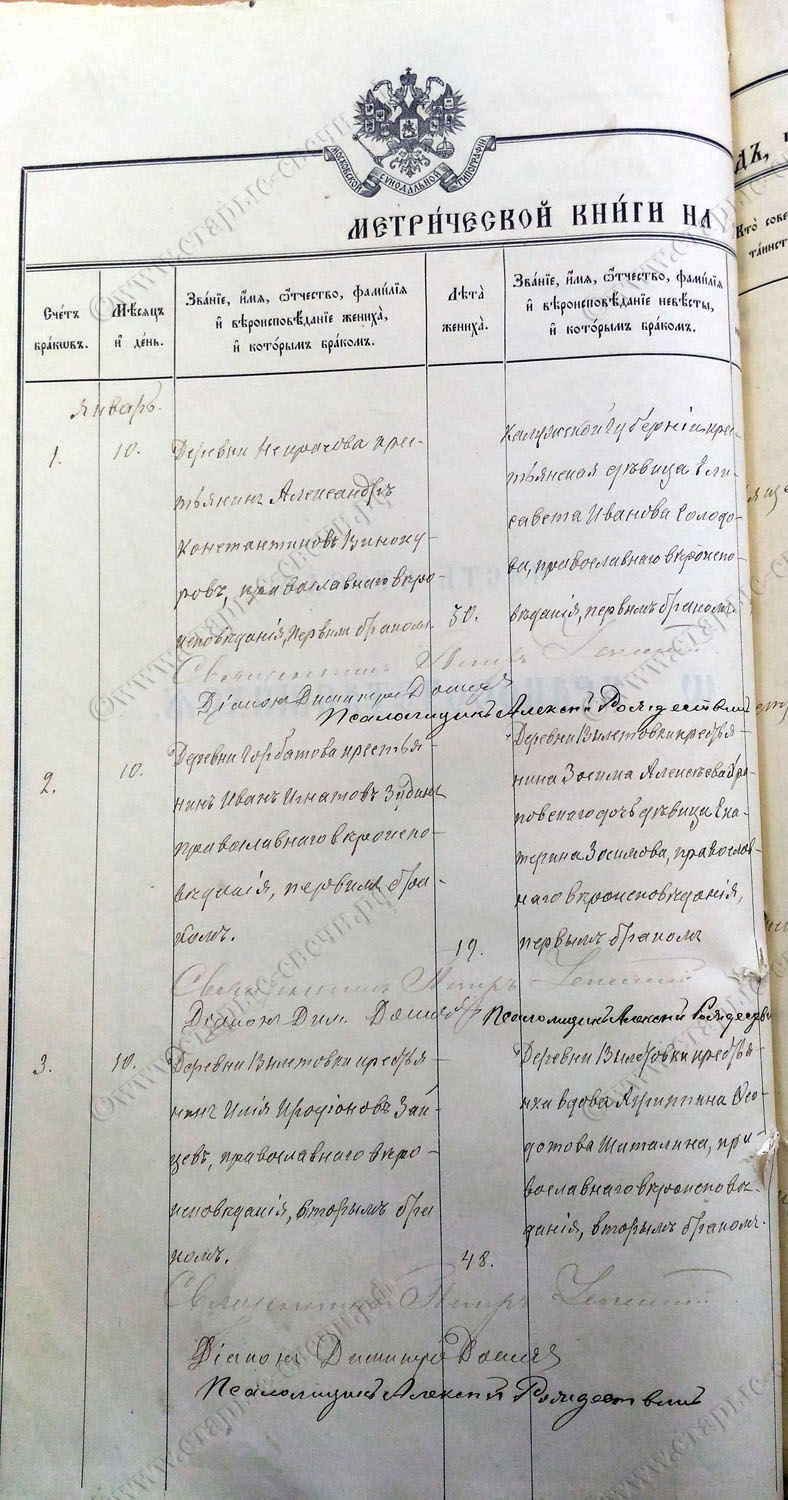 МОСКОВСКОЙ СУНОДАЛЬНОЙ ТИПОГРАФИИ
МЕТРИ́ЧЕСКОЙ КНИ́ГИ НА
Сче́тъ бра́кѡвъ.
Мѣ́сѧцъ и҆ де́нь.
Зва́нїе, и҆́мѧ, ѻ҆́тчество, фами́лїѧ
и҆ вѣроисповѣ́данїе жениха̀,
и҆ кото́рымъ бра́комъ.
Лѣ́та жениха̀.
Зва́нїе, и҆́мѧ, ѻ҆́тчество, фами́лїѧ
и҆ вѣроисповѣ́данїе невѣ́сты,
и҆ кото́рымъ бра́комъ.
Кто̀ сове
та́инст
Январь.
1.
10.
Деревни крес-
тьянинъ Александръ
Константиновъ Виноку-
ровъ, православнаго вѣро-
исповѣданія, первымъ бракомъ.
30.
Калужской губерніи крес-
тьянская дѣвица Ели-
савета Иванова Солодо-
ва, православнаго вѣроиспо-
вѣданія, первымъ бракомъ.
Священникъ Петръ
Діаконъ Димитрій
Псаломщикъ Алексѣй Рождественскій
2.
10.
Деревни Горбатова крестья-
нинъ Иванъ Игнатовъ Зудинъ
православнаго вѣроиспо-
вѣданія, первымъ бра-
комъ.
19.
Деревни Вилетовки крестья-
нина Зосима Алексѣева
дочь дѣвица Ека-
терина Зосимова, православ-
наго вѣроисповѣданія,
первымъ бракомъ
Священникъ Петръ
Діаконъ Дим.
Псаломщикъ Алексѣй Рождественс
3.
10.
Деревни Вилетовки крестья-
нинъ Илія Иродіоновъ Зай-
цевъ, православнаго вѣро-
исповѣданія, вторымъ бра-
комъ.
48.
Деревни Вилетовки крестья-
нка вдова Агриппина Ѳео-
дотова Шаталина, пра-
вославнаго вѣроисповѣ-
данія, вторымъ бракомъ.
Священникъ Петръ
Діаконъ Димитрій
Псаломщикъ Алексѣй Рождественскій
©www.старыс-свечи.рф